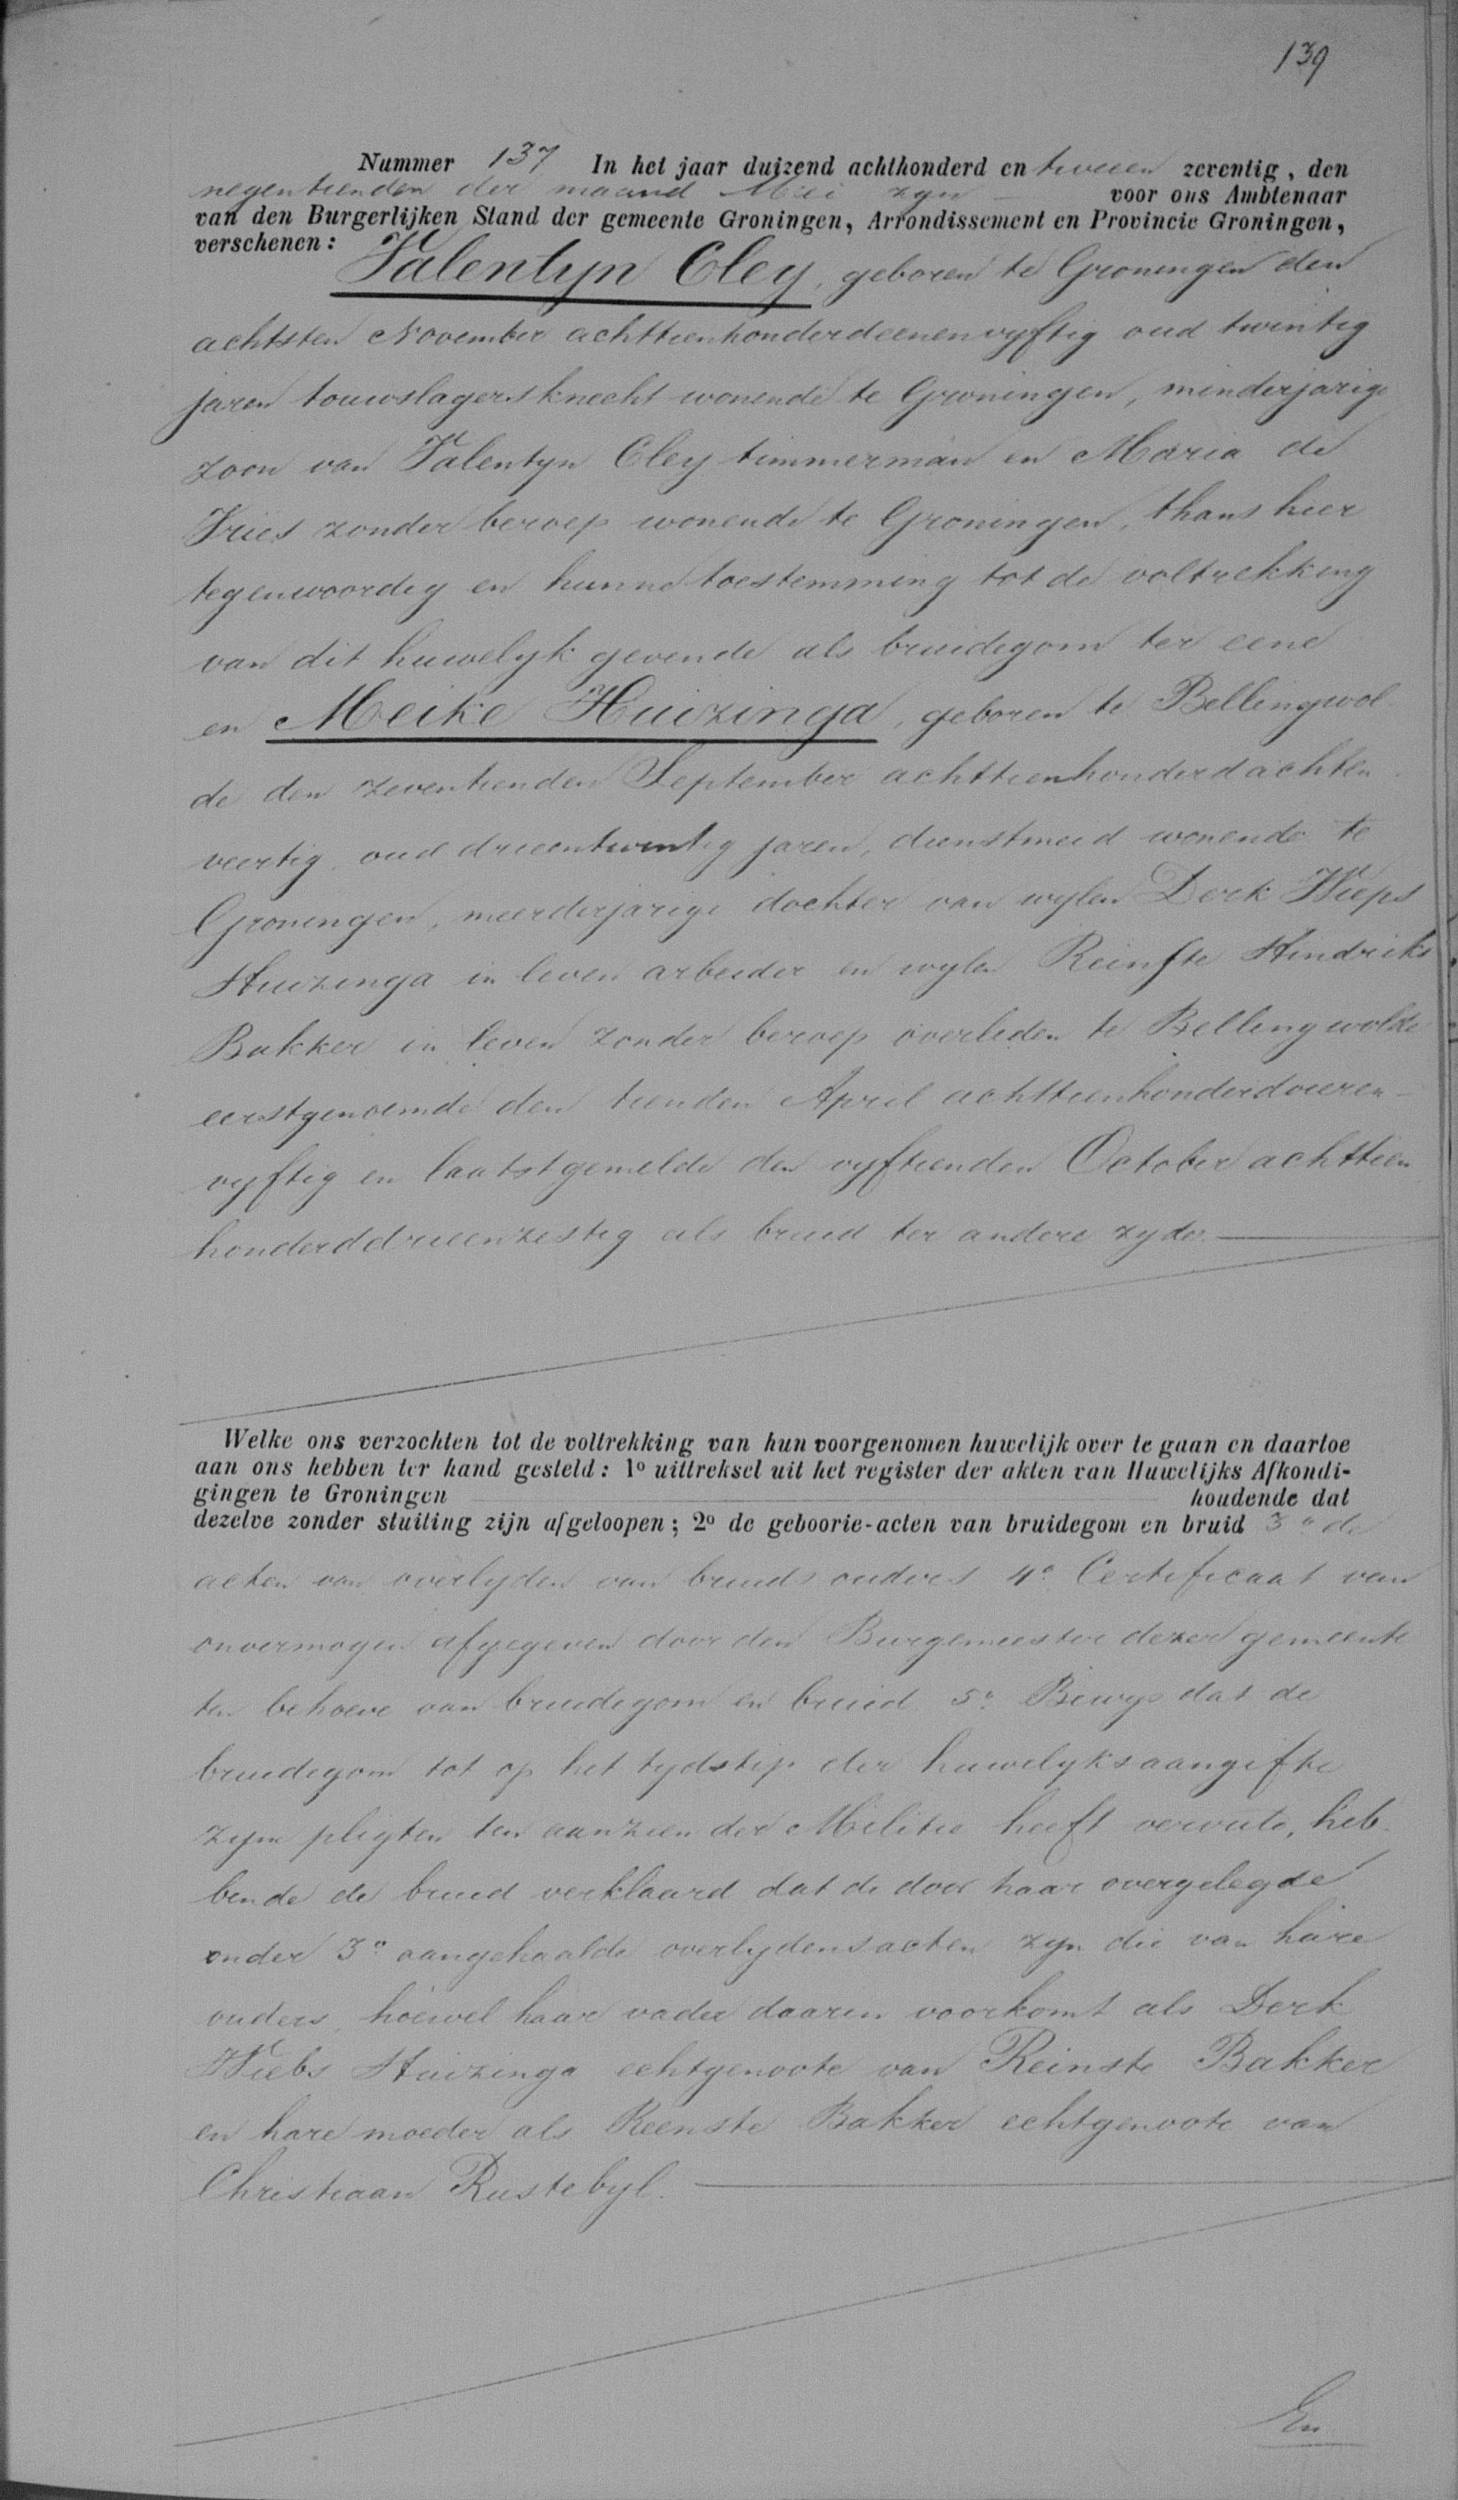 139
Nummer 137 In het jaar duizend achthonderd en tweeen zeventig, den
negentienden der maand Mei zyn voor ons Ambtenaar
van den Burgerlijken Stand der gemeente Groningen, Arrondissement en Provincie Groningen,
verschenen:
Valentyn Cley, geboren te Groningen den
achtsten November achttienhonderdeenenvyftig oud twintig
jaren touwslagersknecht wonende te Groningen, minderjarige
zoon van Valentyn Cley timmerman en Maria de
Vries zonder beroep wonende te Groningen, thans hier
tegenwoordig en hunne toestemming tot de voltrekking
van dit huwelyk gevende als bruidegom ter eene
en Meike Huizinga, geboren te Bellingwol
de den zeventienden September achttienhonderdachten
veertig oud drieentwintig jaren, dienstmeid wonende te
Groningen, meerderjarige dochter van wylen Derk Wieps
Huizinga in leven arbeider en wylen Reinste Hindriks
Bakker in leven zonder beroep overleden te Bellingwolde
eerstgenoemde den tienden April achttienhonderd
vyftig en laatstgemelde den vyftienden October achttien
honderddrieenzestig als bruid ter andere zyde.
Welke ons verzochten tot de voltrekking van hun voorgenomen huwelijk over te gaan en daartoe
aan ons hebben ter hand gesteld: 1o uittreksel uit het register der akten van Huwelijks Afkondi-
gingen te Groningen houdende dat
dezelve zonder stuiting zijn afgeloopen; 2o de geboorte-acten van bruidegom en bruid 3o de
acten van overlyden van bruids ouders 4o Certificaat van
onvermogen afgegeven door den Burgemeester dezer gemeente
ten behoeve van bruidegom en bruid 5o Bewys dat de
bruidegom tot op het tydstip der huwelyksaangifte
zyne pligten ten aanzien der Militie heeft vervuld, heb-
bende de bruid verklaard dat de door haar overgelegde
onder 3o aangehaalde overlydensacten zyn die van hare
ouders, hoewel haar vader daarin voorkomt als Derk
Wiebs Huizinga echtgenoote van Reinste Bakker
en hare moeder als Reenste Bakker echtgenoote van
Christiaan Rustebyl.
En